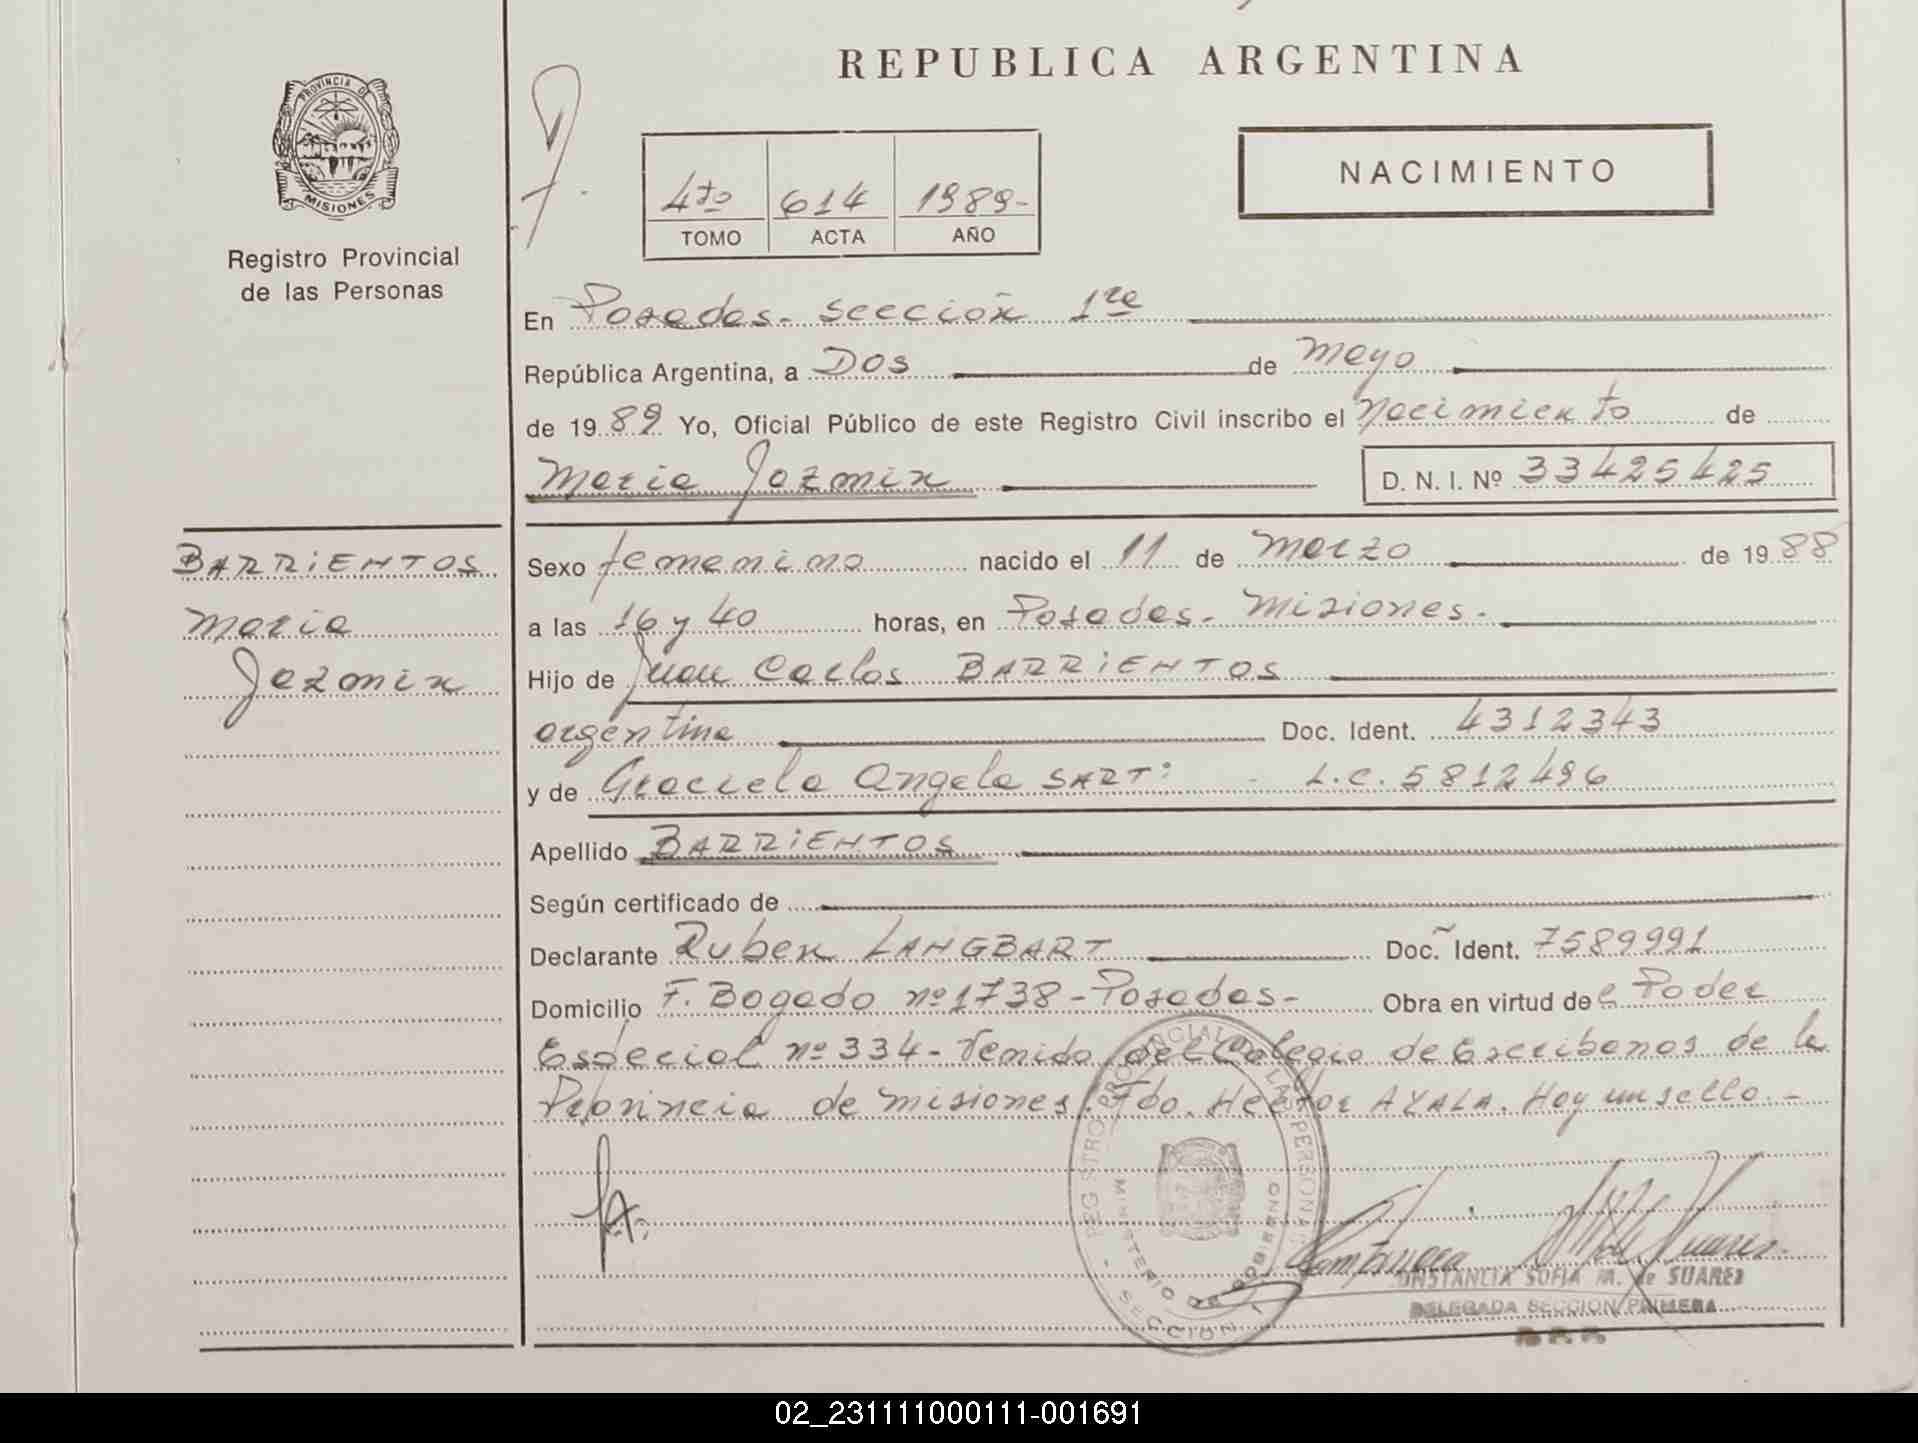 REPUBLICA ARGENTINA
PROVINCIA D
MISIONES
Registro Provincial
de las Personas
4to 614 1989-
TOMO ACTA AÑO
NACIMIENTO
En Posadas- sección 1ra
República Argentina, a Dos de mayo
de 1989 Yo, Oficial Público de este Registro Civil inscribo el nacimiento de
Maria Jazmin D. N. I. Nº 33425425
BARRIENTOS
Maria
Jazmin
Sexo femenino nacido el 11 de marzo de 1988
a las 16 y 40 horas, en Posadas- Misiones.-
Hijo de Juan Carlos BARRIENTOS
argentina Doc. Ident. 4312343
y de Graciela Angela SARTi L.C. 5812496
Apellido BARRIENTOS
Según certificado de
Declarante Ruben LANGBART Doc. Ident. 7589991
Domicilio F. Bogado nº 1738-Posadas- Obra en virtud de Poder
Especial nº 334- del Colegio de Escribanos de la
Provincia de misiones. Fdo. Hector AYALA. Hay un sello.-
REGISTRO PROVINCIAL DE LAS PERSONAS
MINISTERIO DE GOBIERNO
- SECCION 1
CONSTANCIA SOFIA M. de SUAREZ
DELEGADA SECCION PRIMERA
R.P.P.
02_231111000111-001691